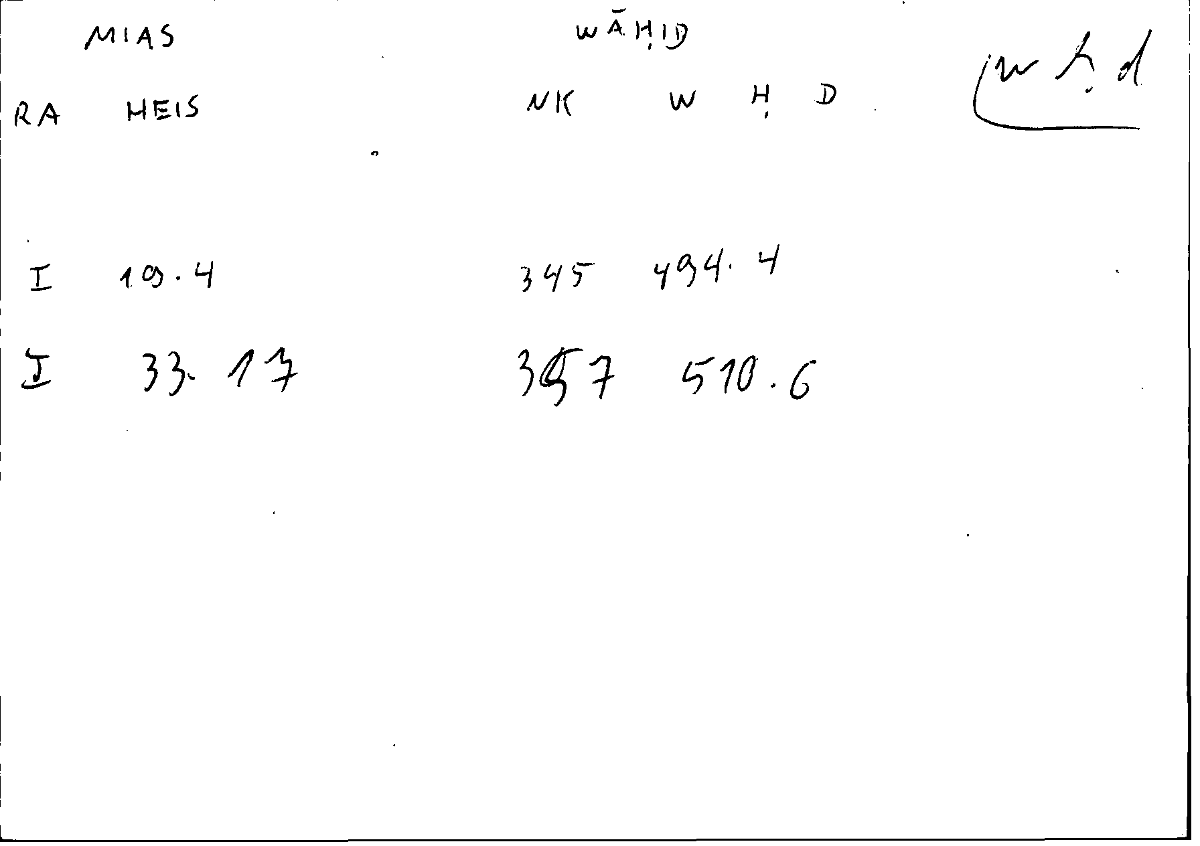 MIAS WĀḤID
RA HEIS NK W Ḥ D w ḥ d
I 19.4 345 494.4
I 33.17 357 510.6